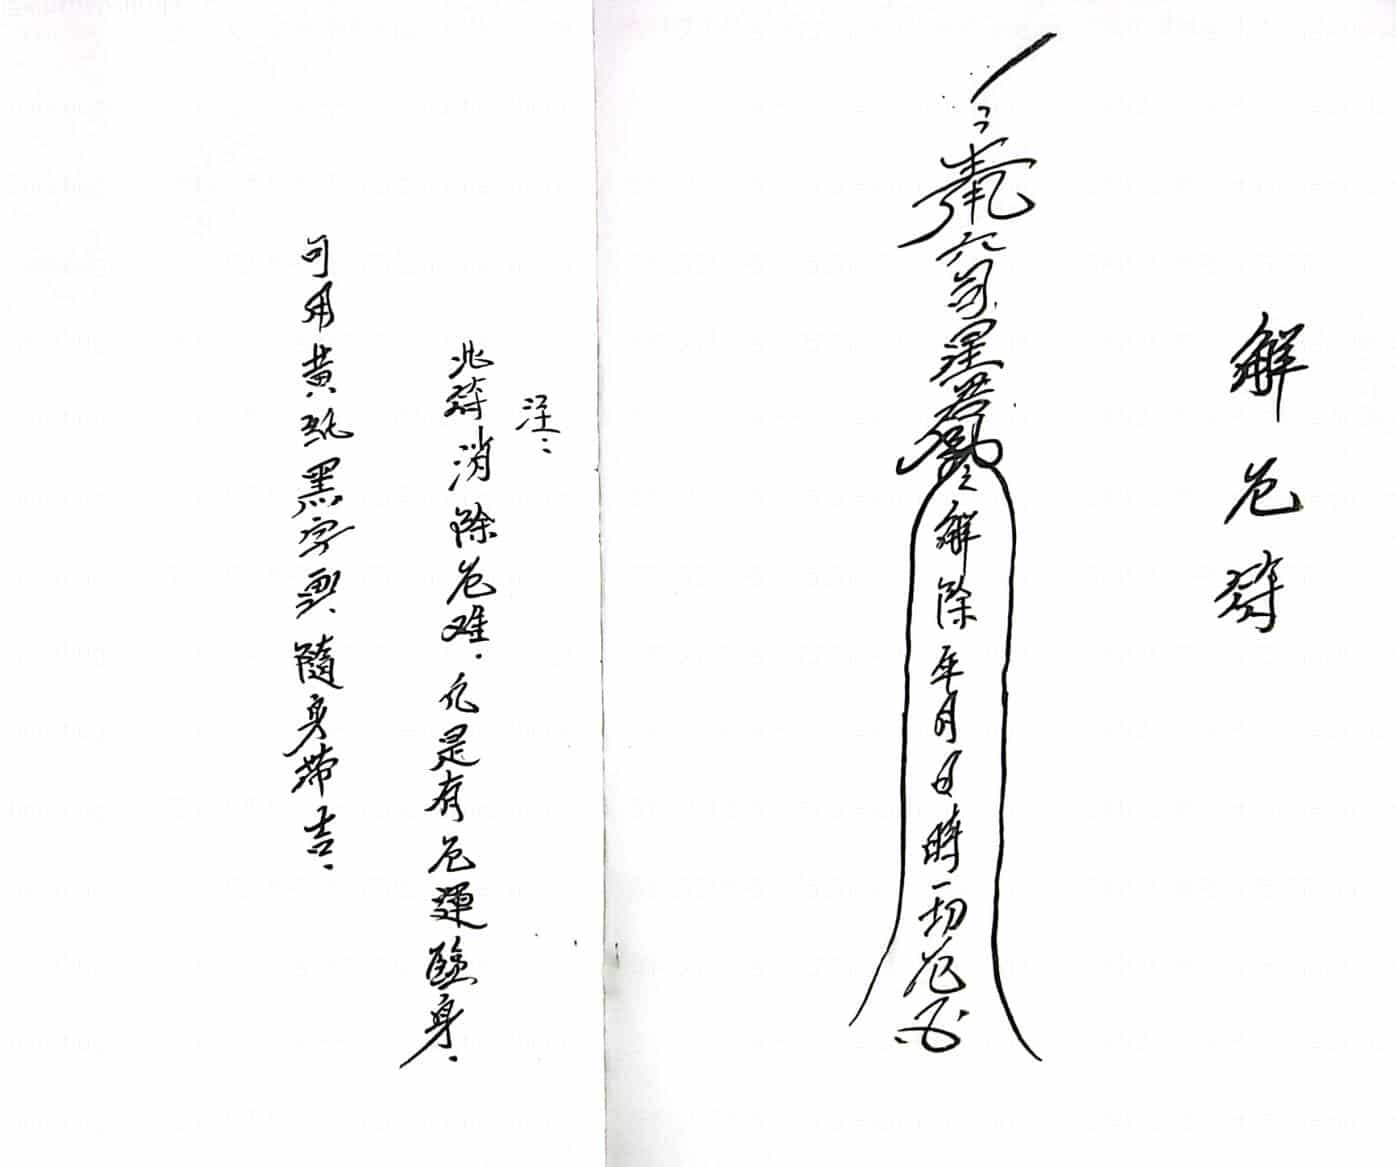 解危符
奉
六司星君
解除年月日時一切危
注:
此符消除危难.凡是有危運臨身.
可用黄纸黑字画.隨身带吉.